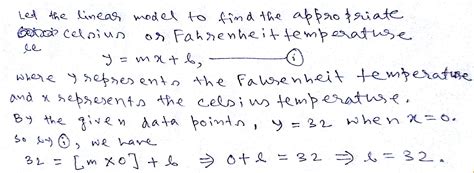 Let the linear model to find the appropriate
Celsius or Fahrenheit temperature
is
y = mx + b, ——— ①
where y represents the Fahrenheit temperature
and x represents the celsius temperature.
By the given data points, y = 32 when x = 0.
So by ①, we have
32 = [m × 0] + b ⇒ 0 + b = 32 ⇒ b = 32.